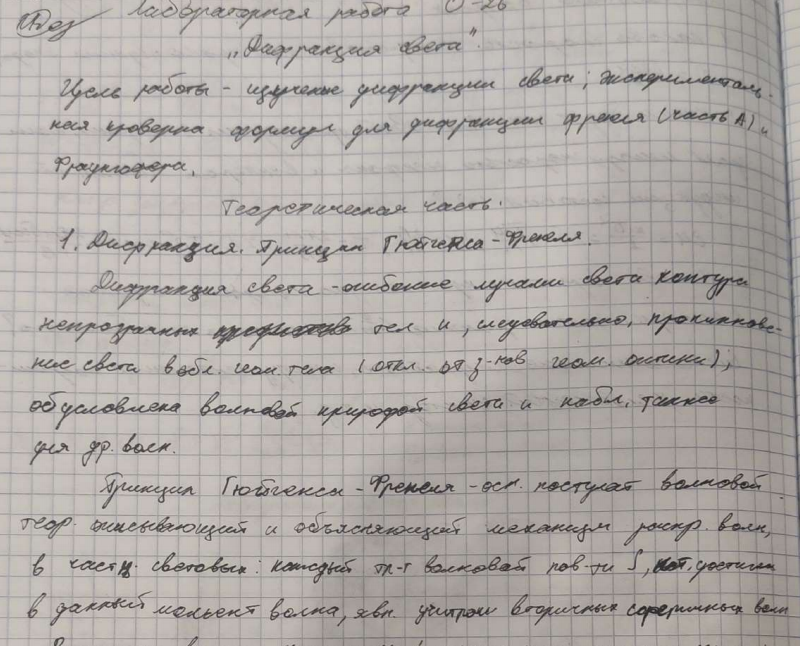 Лабораторная работа О-26
„Дифракция света".
Цель работы - изучение дифракции света; эксперименталь-
ная проверка формул для дифракции френеля (часть А) и
Фраунгофера.
Теоретическая часть.
1. Дифракция. Принцип Гюйгенса-Френеля.
Дифракция света - огибание лучами света контура
непрозрачных тел и, следовательно, проникнове-
ние света в обл. геом тела (откл. от з-нов геом. оптики),
обусловлена волновой природой света и набл. также
для др. волн.
Принцип Гюйгенса-Френеля - осн. постулат волновой
теор. описывающий и объясняющий механизм распр. волн,
в част. световых: каждый эл-т волновой пов-ти S, кот. достигла
в данный момент волна, явл. центром вторичных волн